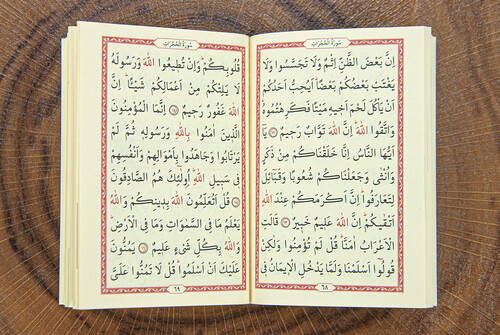 سُورَةُ الْحُجُرَاتِ
اِنَّ بَعْضَ الظَّنِّ اِثْمٌ وَلَا تَجَسَّسُوا وَلَا
يَغْتَبْ بَعْضُكُمْ بَعْضًا اَيُحِبُّ اَحَدُكُمْ
اَنْ يَأْكُلَ لَحْمَ اَخِيهِ مَيْتًا فَكَرِهْتُمُوهُ
وَاتَّقُوا اللّٰهَ اِنَّ اللّٰهَ تَوَّابٌ رَحِيمٌ ﴿١٢﴾ يَٓا
اَيُّهَا النَّاسُ اِنَّا خَلَقْنَاكُمْ مِنْ ذَكَرٍ
وَاُنْثٰى وَجَعَلْنَاكُمْ شُعُوبًا وَقَبَائِلَ
لِتَعَارَفُوا اِنَّ اَكْرَمَكُمْ عِنْدَ اللّٰهِ
اَتْقٰيكُمْ اِنَّ اللّٰهَ عَلِيمٌ خَبِيرٌ ﴿١٣﴾ قَالَتِ
الْاَعْرَابُ اٰمَنَّا قُلْ لَمْ تُؤْمِنُوا وَلٰكِنْ
قُولُوا اَسْلَمْنَا وَلَمَّا يَدْخُلِ الْاِيمَانُ فِى
٦٨
سُورَةُ الْحُجُرَاتِ
قُلُوبِكُمْ وَاِنْ تُطِيعُوا اللّٰهَ وَرَسُولَهُ
لَا يَلِتْكُمْ مِنْ اَعْمَالِكُمْ شَيْـًٔا اِنَّ
اللّٰهَ غَفُورٌ رَحِيمٌ ﴿١٤﴾ اِنَّمَا الْمُؤْمِنُونَ
الَّذِينَ اٰمَنُوا بِاللّٰهِ وَرَسُولِهِ ثُمَّ لَمْ
يَرْتَابُوا وَجَاهَدُوا بِاَمْوَالِهِمْ وَاَنْفُسِهِمْ
فِى سَبِيلِ اللّٰهِ اُولٰٓئِكَ هُمُ الصَّادِقُونَ
﴿١٥﴾ قُلْ اَتُعَلِّمُونَ اللّٰهَ بِدِينِكُمْ وَاللّٰهُ
يَعْلَمُ مَا فِى السَّمٰوَاتِ وَمَا فِى الْاَرْضِ
وَاللّٰهُ بِكُلِّ شَىْءٍ عَلِيمٌ ﴿١٦﴾ يَمُنُّونَ
عَلَيْكَ اَنْ اَسْلَمُوا قُلْ لَا تَمُنُّوا عَلَىَّ
٦٩